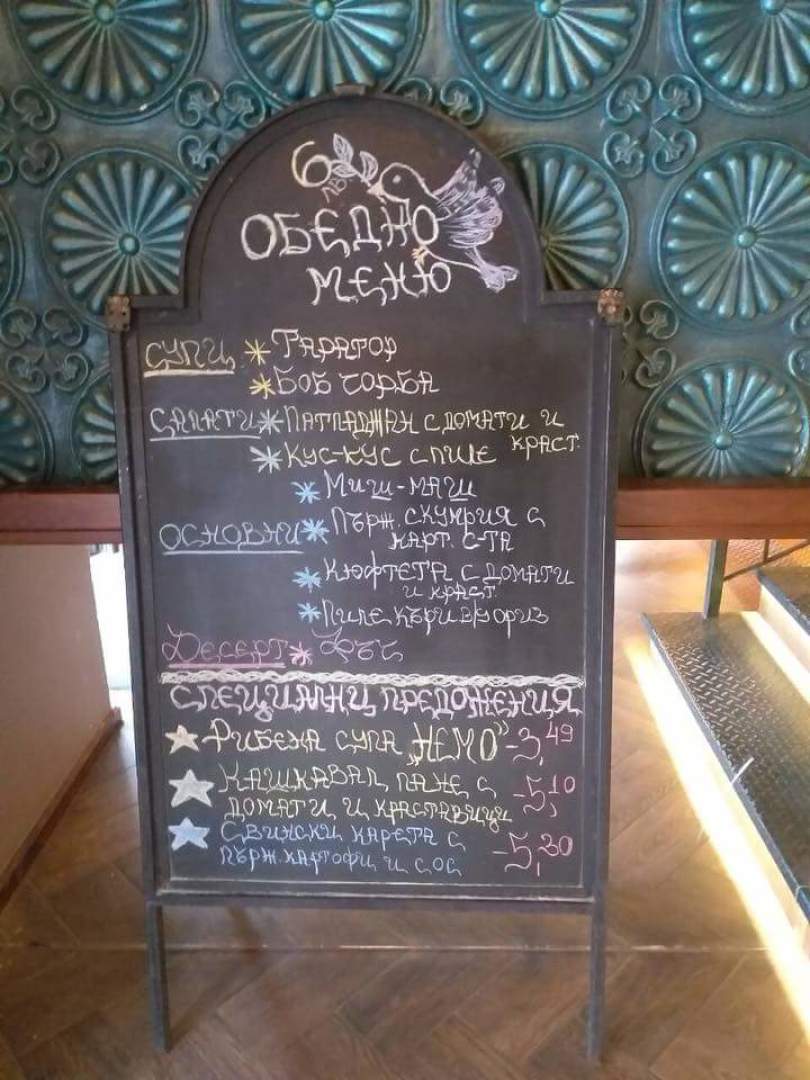 6 лв.
ОБЕДНО
МЕНЮ
СУПИ * ТАРАТОР
* БОБ ЧОРБА
САЛАТИ * ПАТЛАДЖАН С ДОМАТИ И
КРАСТ.
* КУС-КУС С ПИЛЕ
* МИШ-МАШ
ОСНОВНИ * ПЪРЖ. СКУМРИЯ С
КАРТ. С-ТА
* КЮФТЕТА С ДОМАТИ
И КРАСТ.
* ПИЛЕ КЪРИ В/У ОРИЗ
ДЕСЕРТ *
СПЕЦИАЛНИ ПРЕДОЖЕНИЯ
- РИБЕНА СУПА „НЕМО" - 3,49
КАШКАВАЛ ПАНЕ С - 5,10
ДОМАТИ И КРАСТАВИЦИ
СВИНСКИ КАРЕТА С - 5,30
ПЪРЖ. КАРТОФИ И СОС